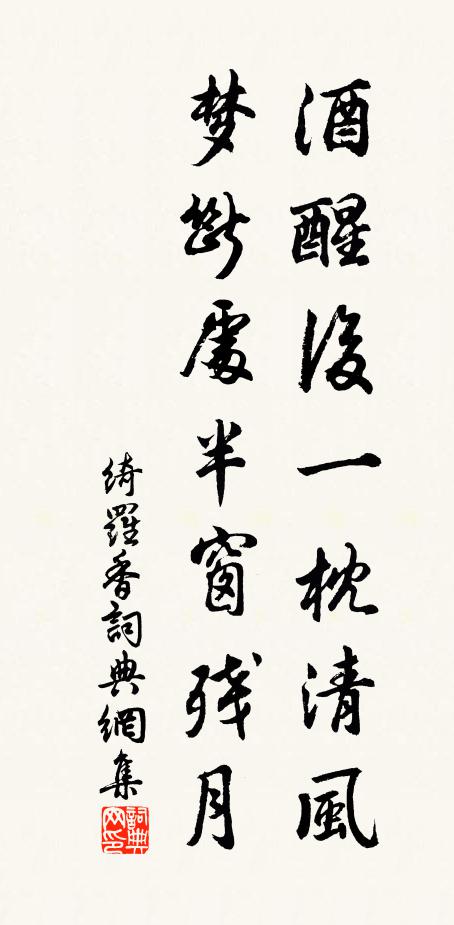 酒醒後一枕清風
梦斷處半窗残月
綺羅香詞典網集
詞典网印